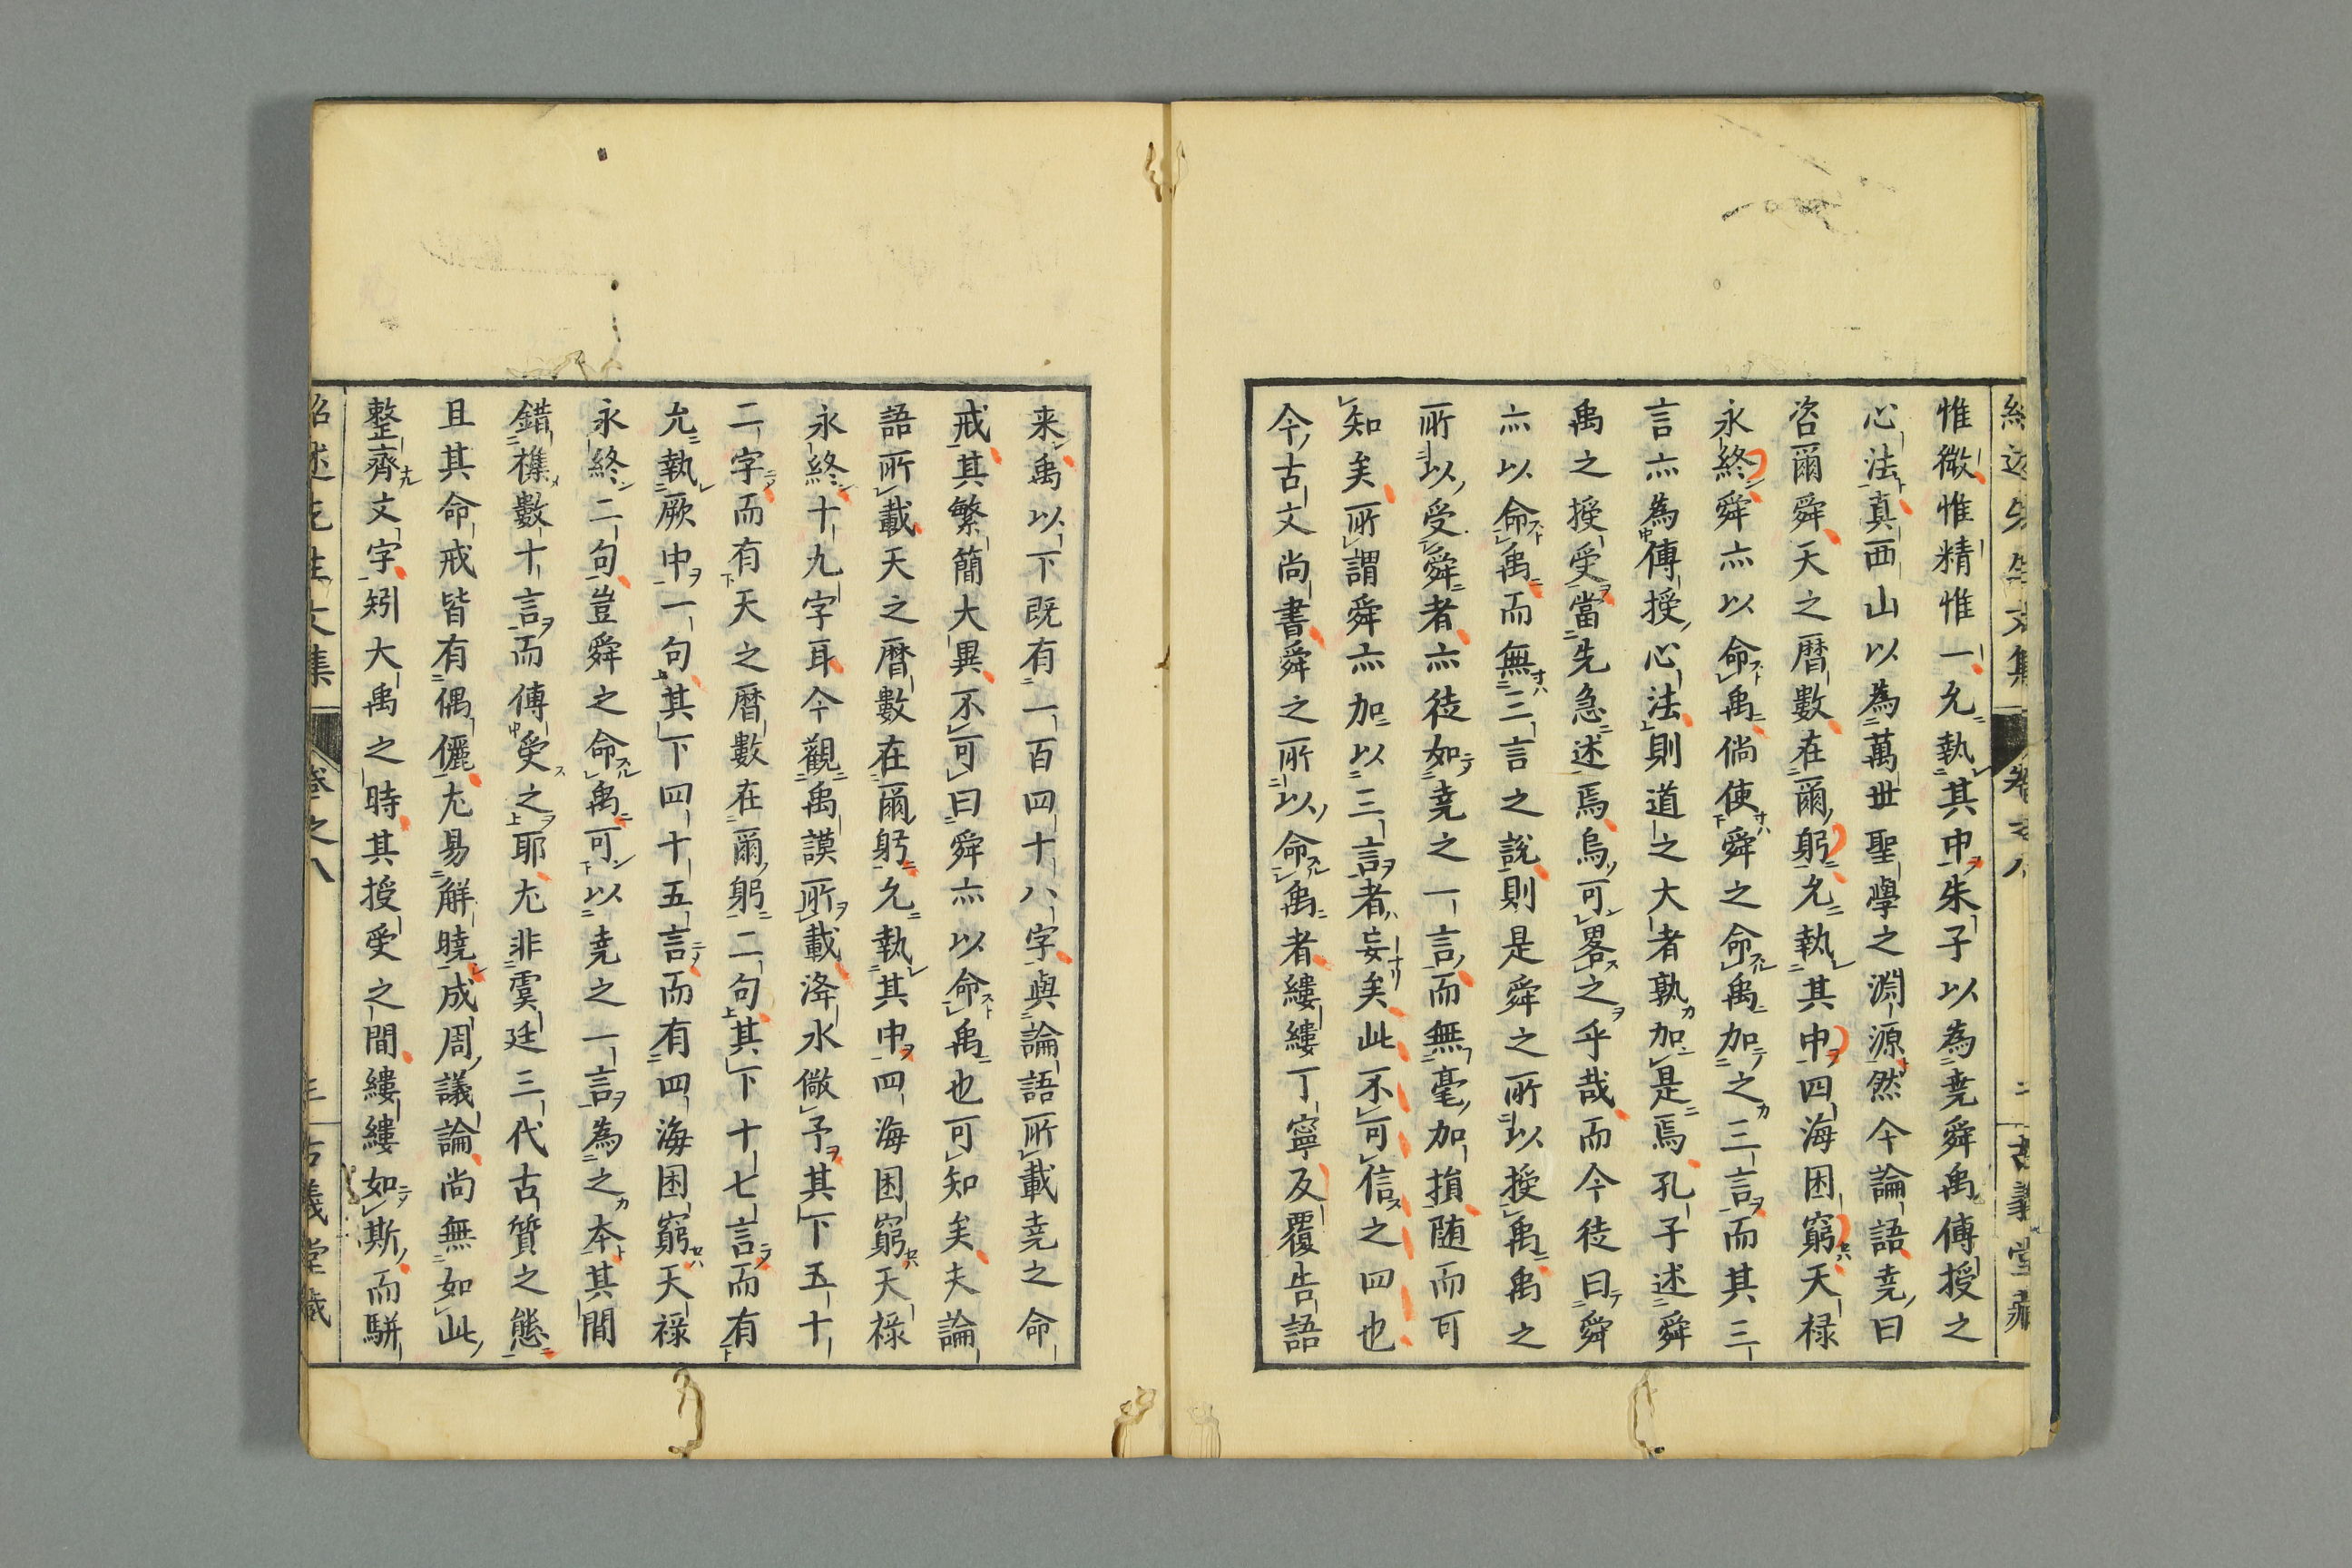 惟微惟精惟一允執其中朱子以為堯舜禹傳授之
心法真西山以為萬世聖學之淵源然今論語堯曰
咨爾舜天之曆數在爾躬允執其中四海困窮天禄
永終舜亦以命禹倘使舜之命禹加之三言而其三
言亦為傳授心法則道之大者孰加是焉孔子述舜
禹之授受當先急述焉烏可畧之乎哉而今徒曰舜
亦以命禹而無三言之說則是舜之所以授禹禹之
所以受舜者亦徒如堯之一言而無毫加損随而可
知矣所謂舜亦加以三言者妄矣此不可信之四也
今古文尚書舜之所以命禹者縷縷丁寧反覆告語
来禹以下既有一百四十八字與論語所載堯之命
戒其繁簡大異不可曰舜亦以命禹也可知矣夫論
語所載天之曆數在爾躬允執其中四海困窮天禄
永終十九字耳今觀禹謨所載洚水儆予其下五十
二字而有天之曆數在爾躬二句其下十七言而有
允執厥中一句其下四十五言而有四海困窮天禄
永終二句豈舜之命禹可以堯之一言為之本其間
錯襍數十言而傳受之耶尤非虞廷三代古質之態
且其命戒皆有偶儷尤易解曉成周議論尚無如此
整齊文字矧大禹之時其授受之間縷縷如斯而駢
紹述先生文集 卷之八 三 古義堂藏